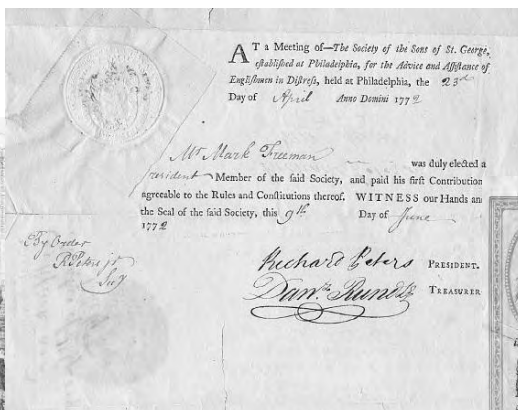 AT a Meeting of—The Society of the Sons of St. George,
eſtabliſhed at Philadelphia, for the Advice and Aſſiſtance of
Engliſhmen in Diſtreſs, held at Philadelphia, the 23d
Day of April Anno Domini 1772
Mr Mark Freeman was duly elected a
President Member of the ſaid Society, and paid his firſt Contribution
agreeable to the Rules and Conſtitutions thereof. WITNESS our Hands an
the Seal of the ſaid Society, this 9th Day of June
1772
By Order
R Peters jr
Richard Peters PRESIDENT.
Danl. Rundle TREASURER